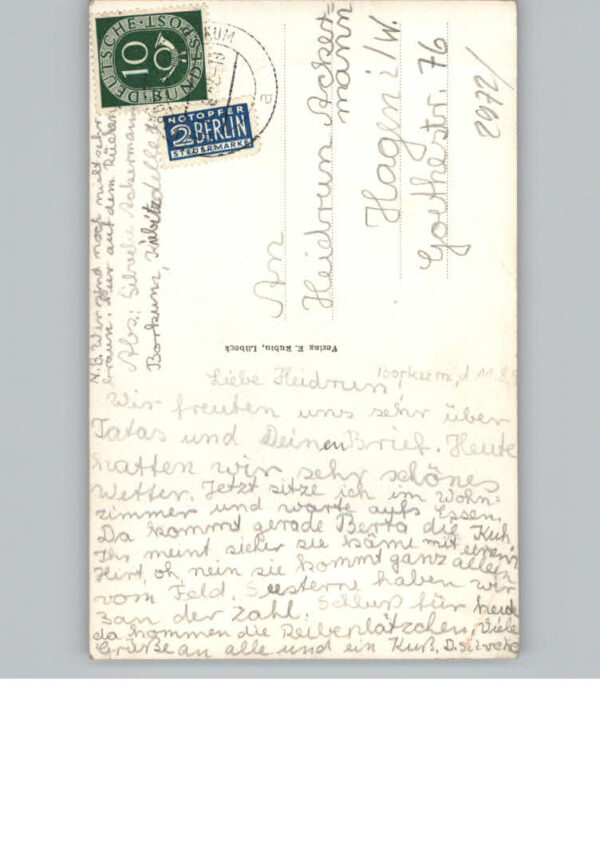 DEUTSCHE BUNDESPOST
10
NOTOPFER
2 BERLIN
STEUERMARKE
KUM
e
An
Heidrun Acker=
mann
Hagen i/W.
Goethestr. 76
2972/
Verlag E. Rubin, Lübeck
N.B. Wir sind noch nicht sehr
braun. Nur auf dem Rücken
Abs.: Silveke Ackermann
Borkum, Kiebitzdelle
Borkum, d 11.8.5
Liebe Heidrun
Wir freuten uns sehr über
Tatas und Deinen Brief. Heute
hatten wir sehr schönes
Wetter. Jetzt sitze ich im Wohn=
zimmer und warte aufs Essen.
Da kommt gerade Berta die Kuh.
Ihr meint sicher sie käme mit einem
Hirt, oh nein sie kommt ganz allein
vom Feld. Seesterne haben wir
3 an der Zahl. Schluß für heute
da kommen die Reibeplätzchen. Viele
Grüße an alle und ein Kuß. D. Silveke